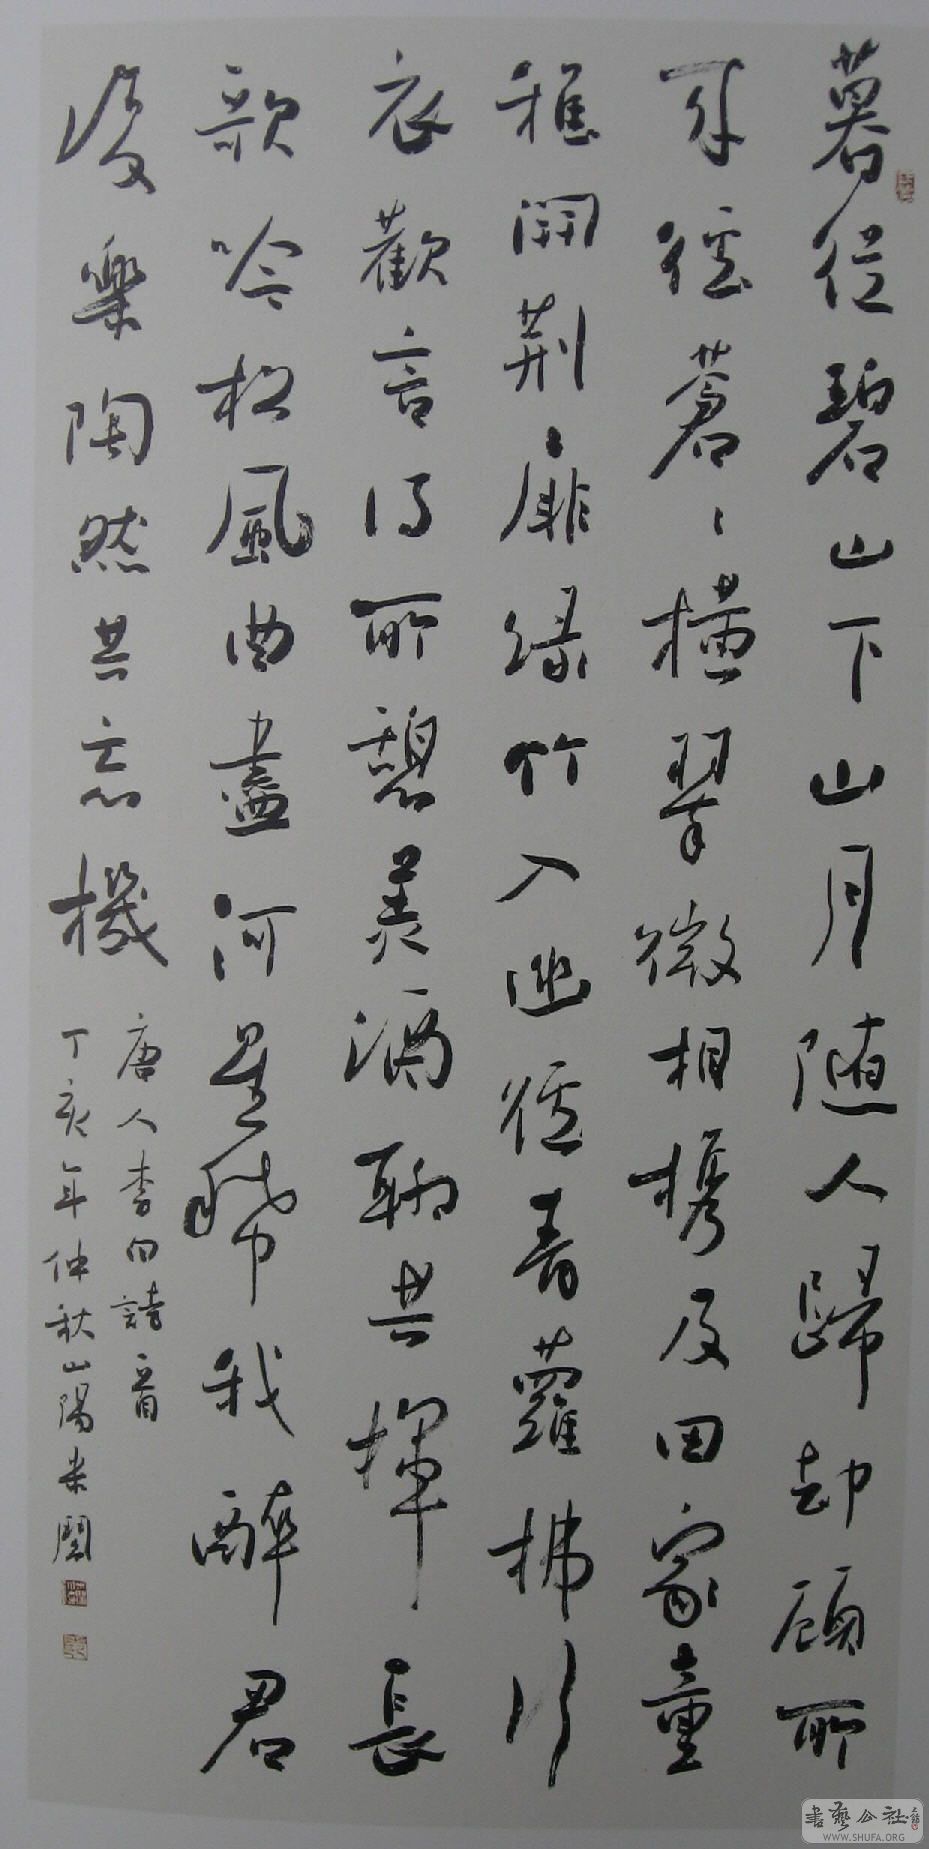 暮從碧山下山月随人歸却顧所
来徑蒼〻横翠微相携及田家童
稚開荆扉緑竹入幽徑青蘿拂行
衣歡言得所憩美酒聊共揮長
歌吟松風曲盡河星稀我醉君
復樂陶然共忘機
唐人李白詩一首
丁亥年仲秋山陽
書藝公社
WWW.SHUFA.ORG